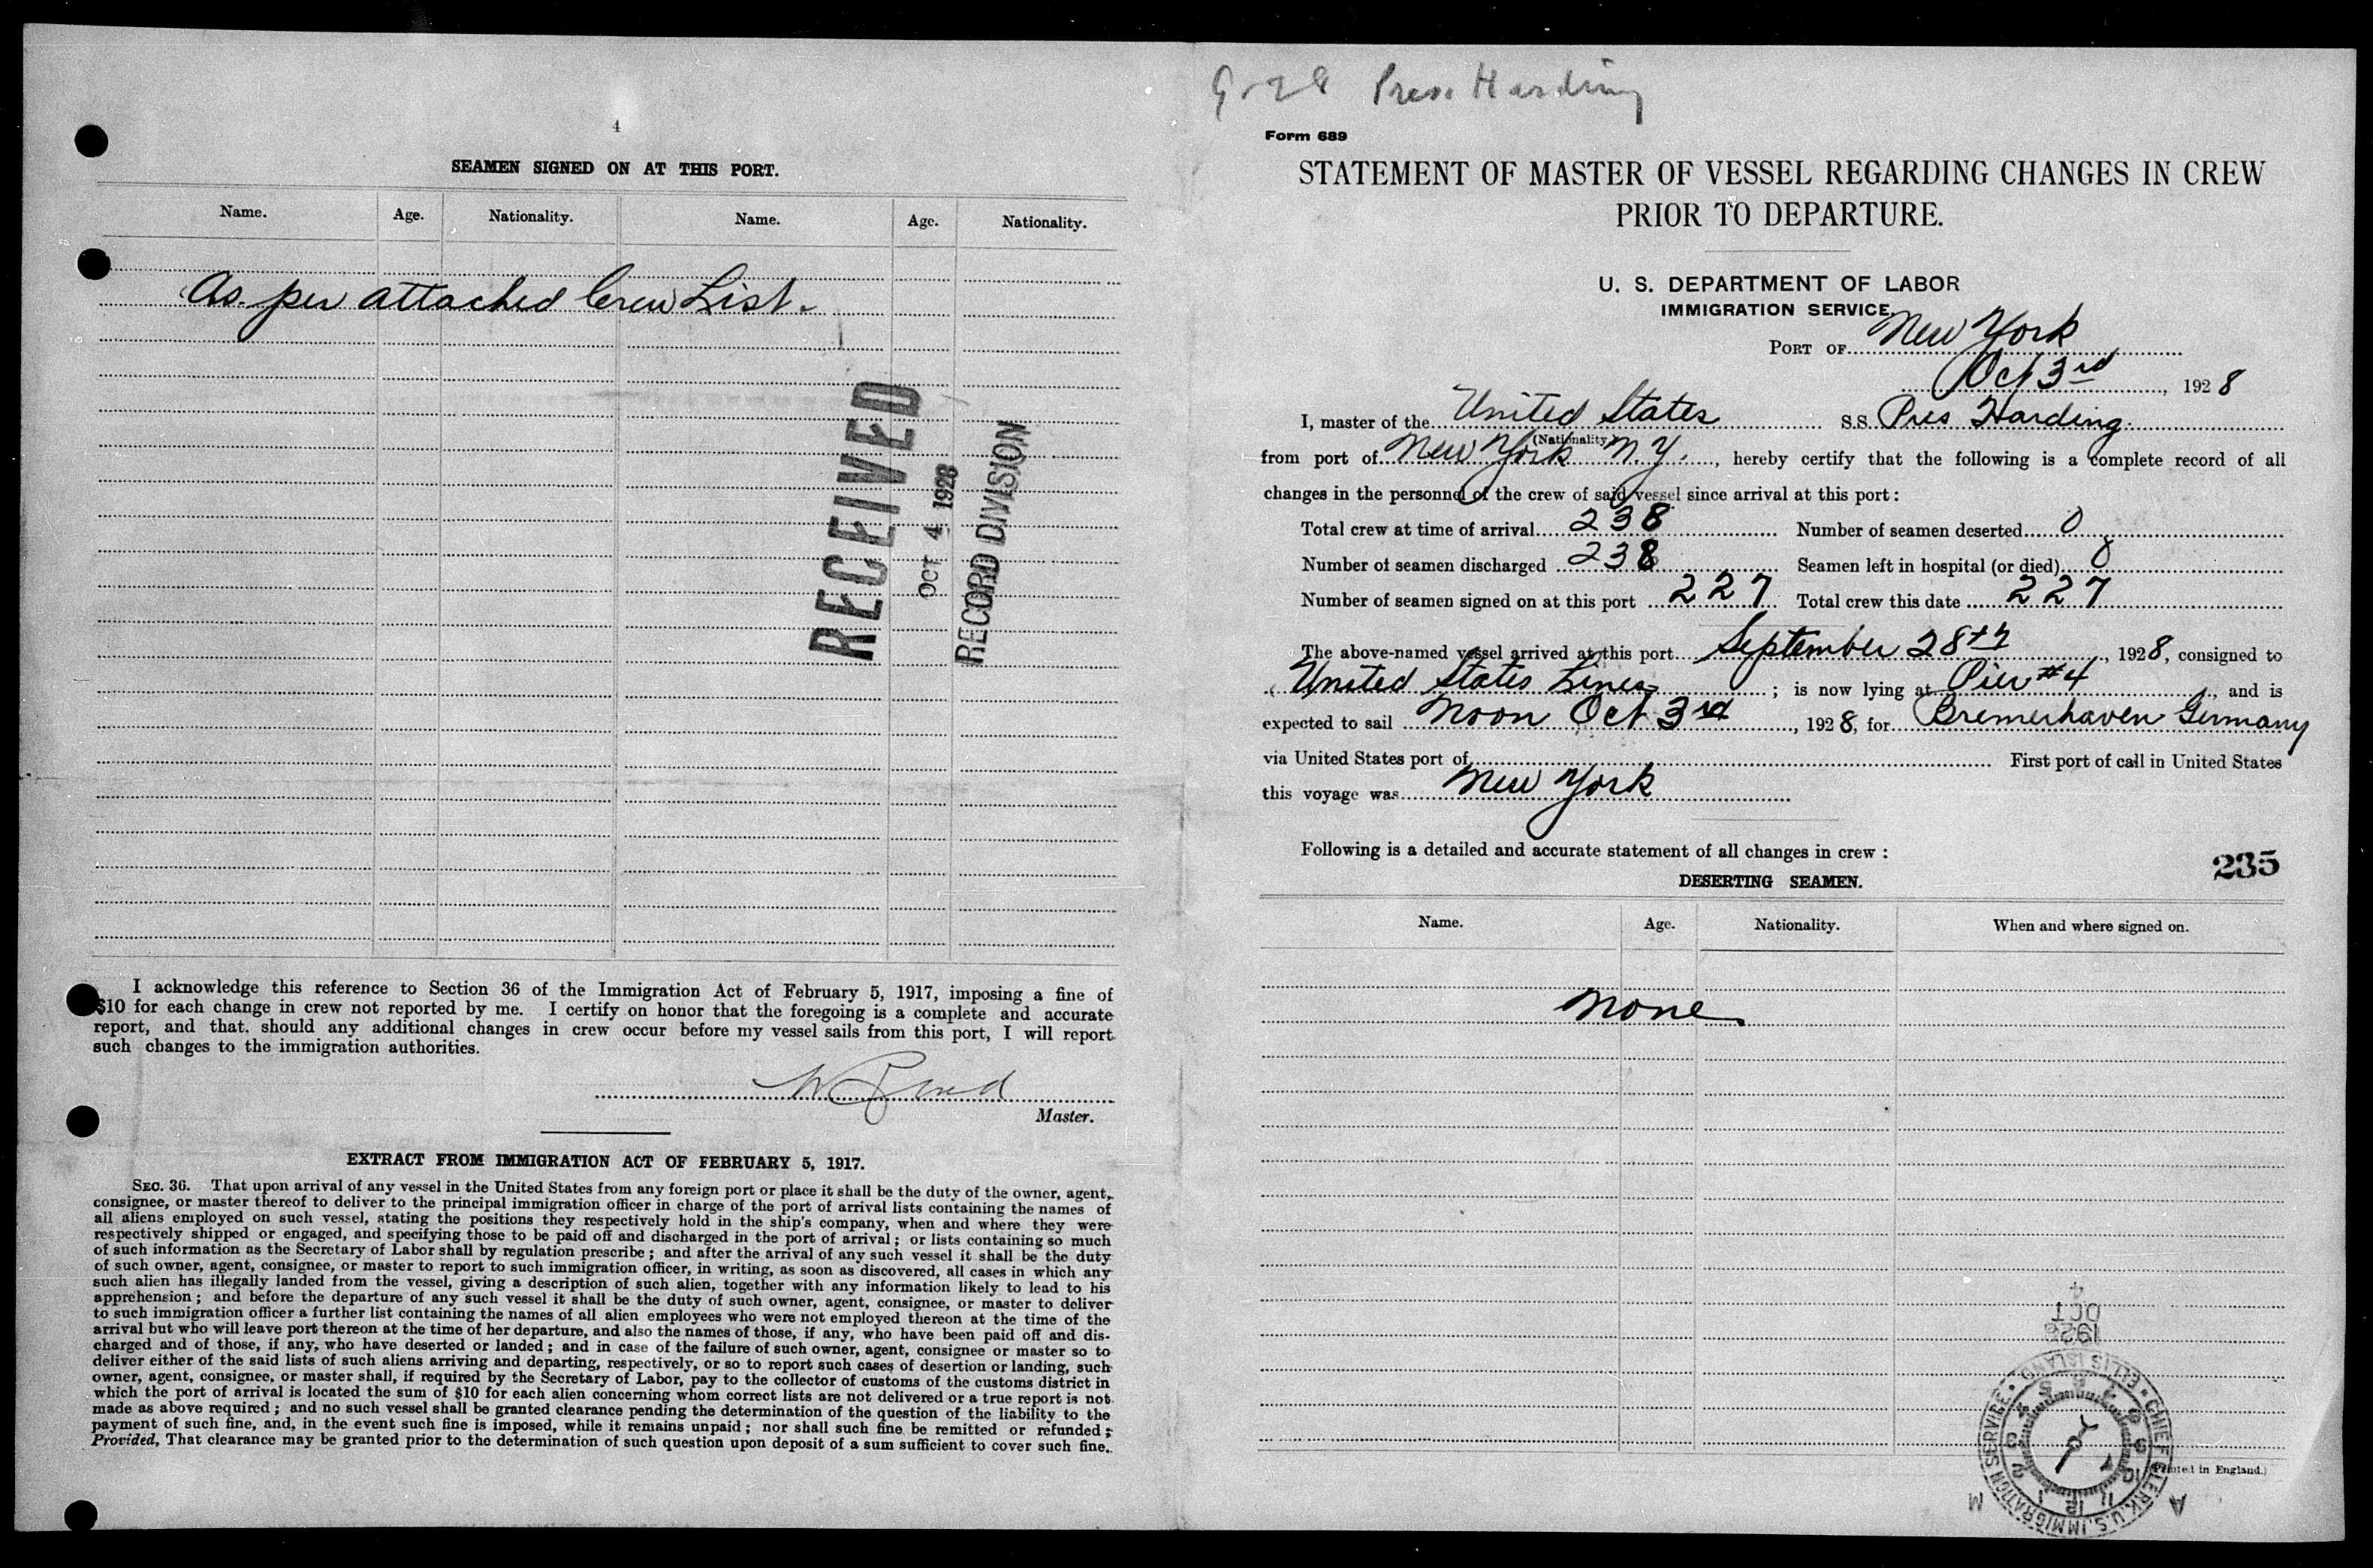 4
SEAMEN SIGNED ON AT THIS PORT.
Name. Age. Nationality. Name. Age. Nationality.
As per attached Crew List.
RECEIVED
OCT 4 1928
RECORD DIVISION
I acknowledge this reference to Section 36 of the Immigration Act of February 5, 1917, imposing a fine of
$10 for each change in crew not reported by me. I certify on honor that the foregoing is a complete and accurate
report, and that. should any additional changes in crew occur before my vessel sails from this port, I will report
such changes to the immigration authorities.
Master.
EXTRACT FROM IMMIGRATION ACT OF FEBRUARY 5, 1917.
SEC. 36. That upon arrival of any vessel in the United States from any foreign port or place it shall be the duty of the owner, agent,
consignee, or master thereof to deliver to the principal immigration officer in charge of the port of arrival lists containing the names of
all aliens employed on such vessel, stating the positions they respectively hold in the ship's company, when and where they were
respectively shipped or engaged, and specifying those to be paid off and discharged in the port of arrival; or lists containing so much
of such information as the Secretary of Labor shall by regulation prescribe; and after the arrival of any such vessel it shall be the duty
of such owner, agent, consignee, or master to report to such immigration officer, in writing, as soon as discovered, all cases in which any
such alien has illegally landed from the vessel, giving a description of such alien, together with any information likely to lead to his
apprehension; and before the departure of any such vessel it shall be the duty of such owner, agent, consignee, or master to deliver
to such immigration officer a further list containing the names of all alien employees who were not employed thereon at the time of the
arrival but who will leave port thereon at the time of her departure, and also the names of those, if any, who have been paid off and dis-
charged and of those, if any, who have deserted or landed; and in case of the failure of such owner, agent, consignee or master so to
deliver either of the said lists of such aliens arriving and departing, respectively, or so to report such cases of desertion or landing, such
owner, agent, consignee, or master shall, if required by the Secretary of Labor, pay to the collector of customs of the customs district in
which the port of arrival is located the sum of $10 for each alien concerning whom correct lists are not delivered or a true report is not
made as above required; and no such vessel shall be granted clearance pending the determination of the question of the liability to the
payment of such fine, and, in the event such fine is imposed, while it remains unpaid; nor shall such fine be remitted or refunded;
Provided, That clearance may be granted prior to the determination of such question upon deposit of a sum sufficient to cover such fine.
9-28 Pres. Harding
Form 689
STATEMENT OF MASTER OF VESSEL REGARDING CHANGES IN CREW
PRIOR TO DEPARTURE.
U. S. DEPARTMENT OF LABOR
IMMIGRATION SERVICE.
PORT OF New York
Oct 3rd, 1928
I, master of the United States S.S. Pres Harding
(Nationality)
from port of New York N.Y., hereby certify that the following is a complete record of all
changes in the personnel of the crew of said vessel since arrival at this port:
Total crew at time of arrival 238 Number of seamen deserted 0
Number of seamen discharged 238 Seamen left in hospital (or died) 0
Number of seamen signed on at this port 227 Total crew this date 227
The above-named vessel arrived at this port September 28th, 1928, consigned to
United States Lines; is now lying at Pier #4, and is
expected to sail Noon Oct 3rd, 1928, for Bremerhaven Germany
via United States port of First port of call in United States
this voyage was New York
Following is a detailed and accurate statement of all changes in crew:
235
DESERTING SEAMEN.
Name. Age. Nationality. When and where signed on.
None
4
OCT
1928
CHIEF CLERK, U.S. IMMIGRATION SERVICE • ELLIS ISLAND •
A M
(Printed in England.)